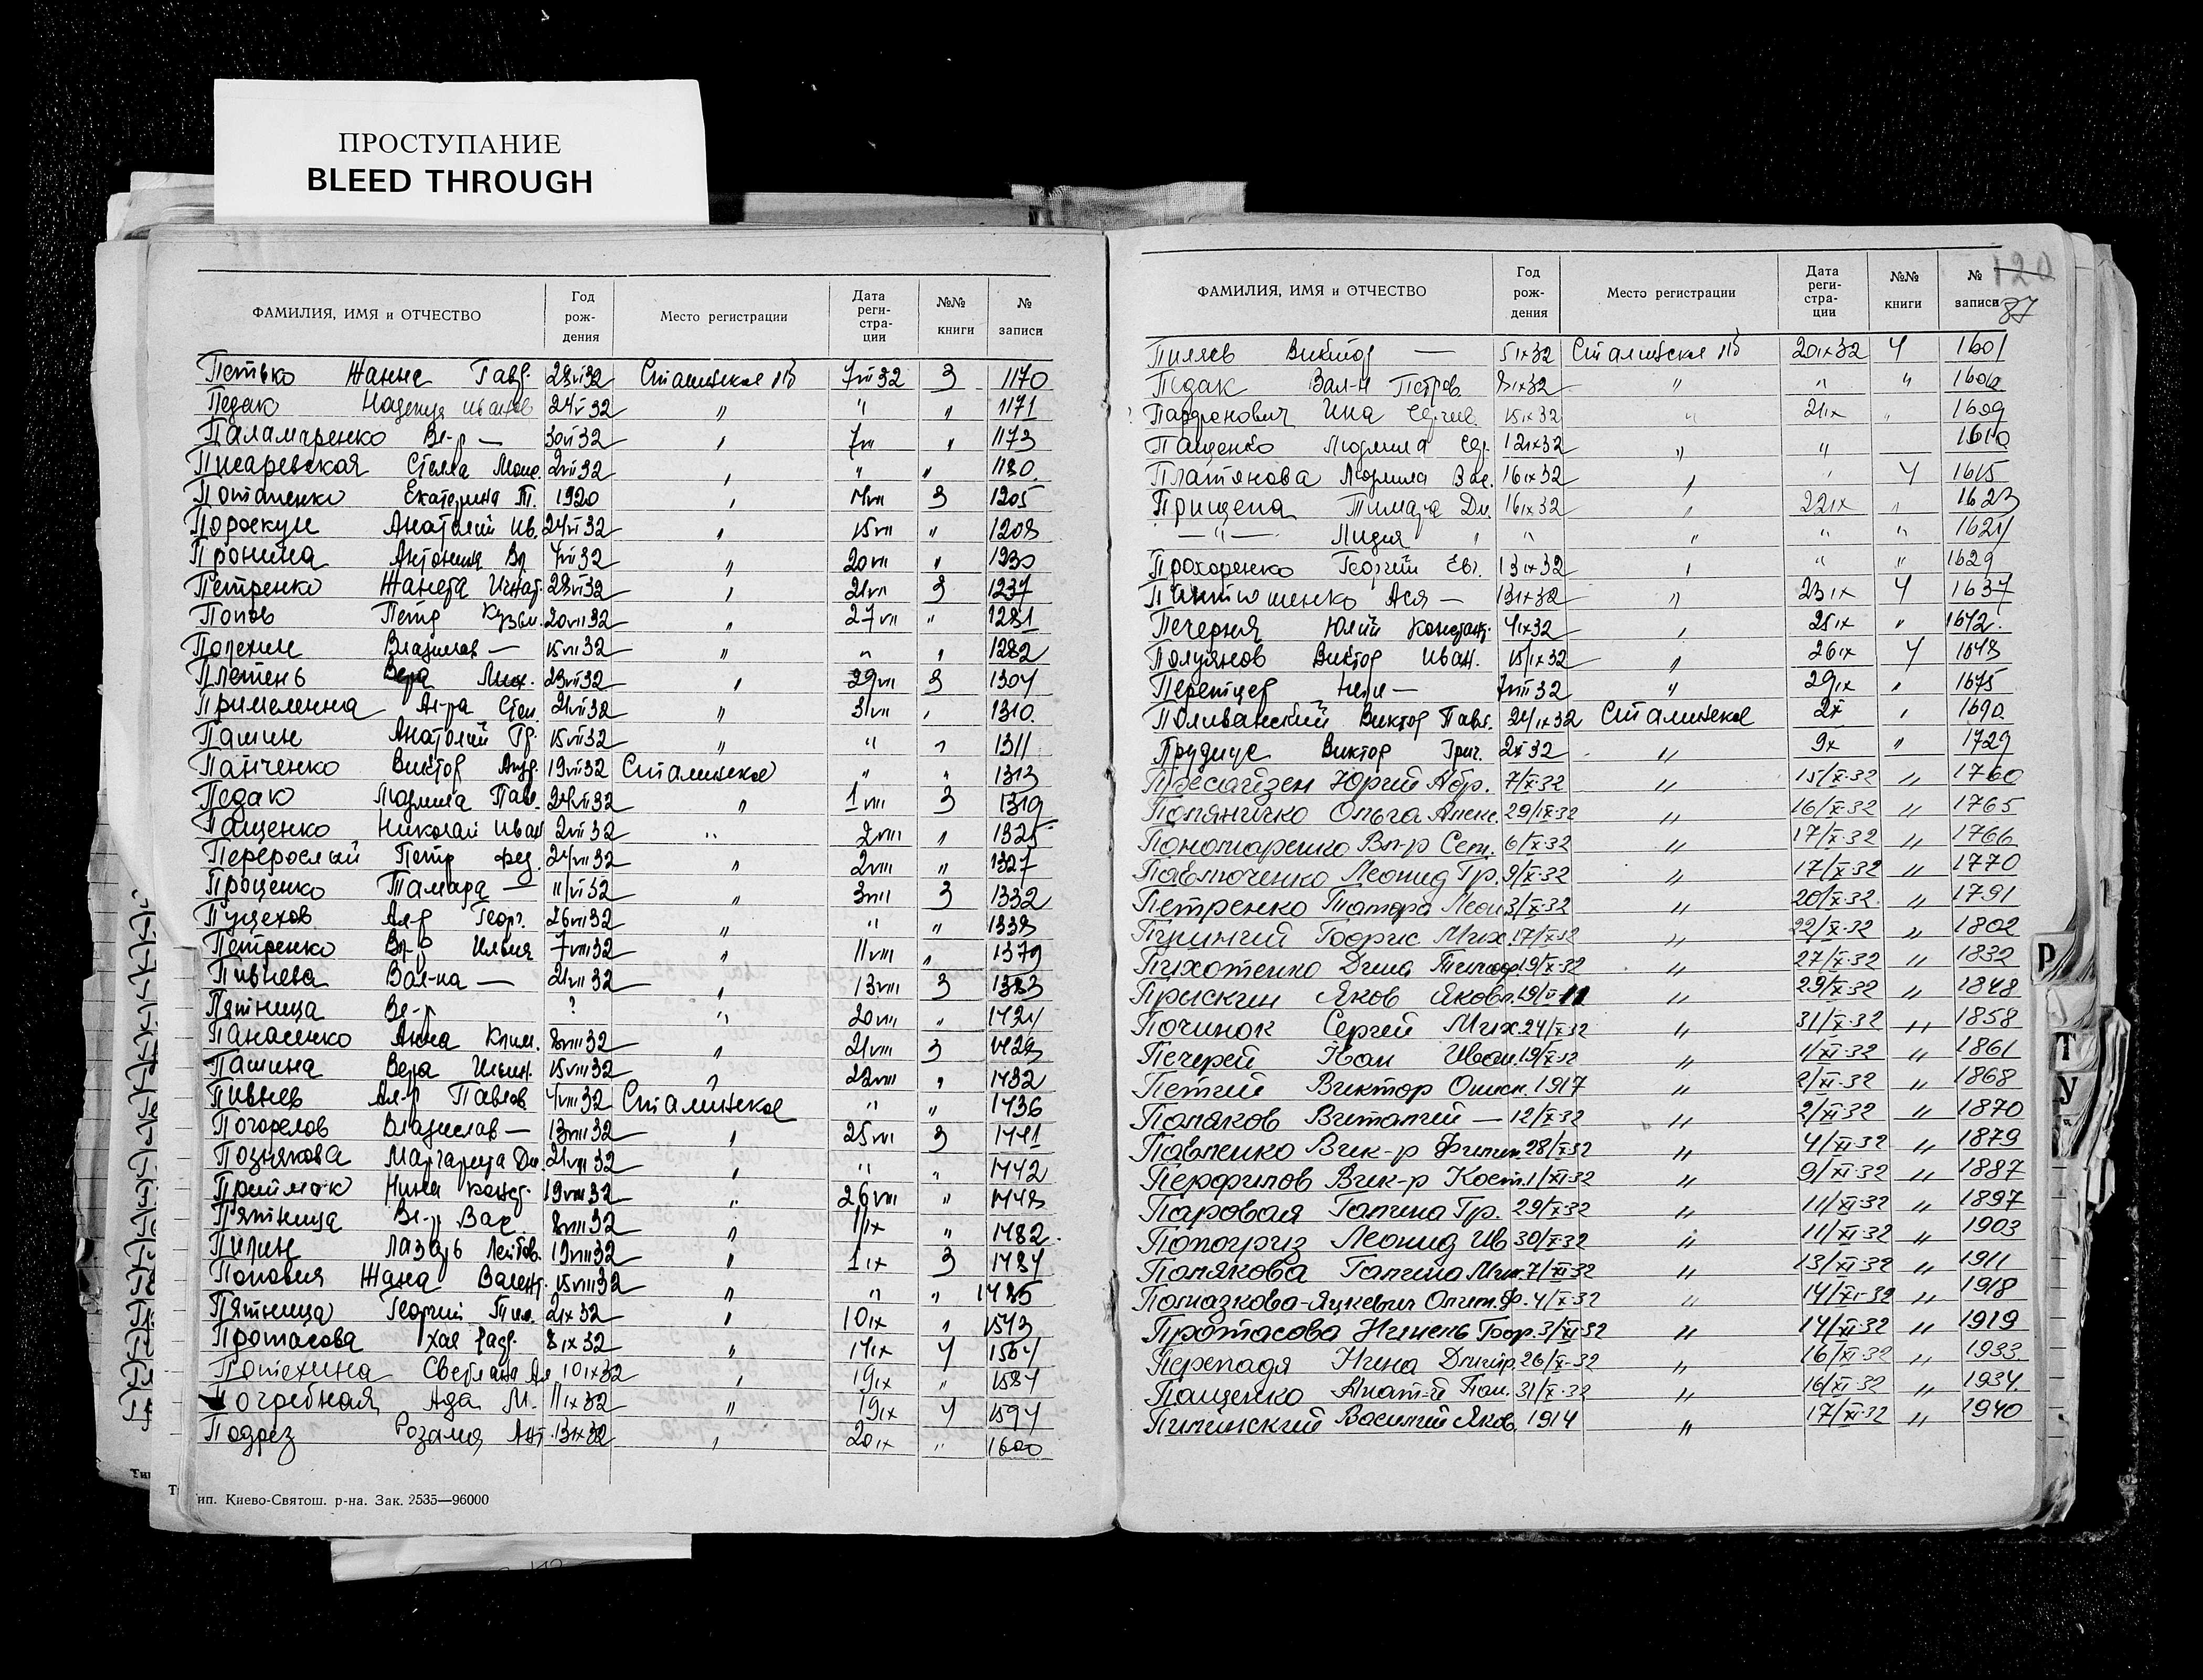 ПРОСТУПАНИЕ
BLEED THROUGH
ФАМИЛИЯ, ИМЯ и ОТЧЕСТВО Год рож- дения Место регистрации Дата реги- стра- ции №№ книги № записи
Петько Жанна Гавр. 28VI32 Сталинское 7VII32 3 1170
Педак Надежда Иванов 24V32 " " " 1171
Паламаренко Вл-р — 30VI32 " 7VII " 1173
Писаревская Стелла 2VII32 " " " 1180
Потапенко Екатерина Т. 1920 " 14VII 3 1205
Анатолий Ив. 24VI32 " 15VII " 1208
Пронина Антонина Вл 7VII32 " 20VII " 1230
Петренко Жанета Игнат. 28VI32 " 21VII 3 1237
Попов Петр Кузьм. 20VII32 " 27VII " 1281
Владислав — 15VII32 " " " 1282
Плетень Вера Мих. 23VII32 " 29VII 3 1304
Ал-ра Степ. 21VII32 " 31VII " 1310
Пашин Анатолий Гр. 15VII32 " " " 1311
Панченко Виктор Андр. 19VII32 Сталинское " " 1313
Педак Людмила Павл. 24VII32 " 1VIII 3 1319
Пащенко Николай Иван 2VII32 " 2VIII " 1325
Перерослый Петр Фед. 24VII32 " 2VIII " 1327
Проценко Тамара — 11/VI32 " 3VIII 3 1332
Ал-р Георг. 26VII32 " " " 1338
Петренко Вл-р 7VIII32 " 11VIII " 1379
Пивнева Вал-на — 21VII32 " 13VIII 3 1383
Пятница Вл-р ? " 20VIII " 1424
Панасенко Анна Клим. 8VIII32 " 21VIII 3 1428
Пашина Вера Ильин. 15VIII32 " 22VIII " 1432
Пивнев Ал-р Павлов 4VIII32 Сталинское " " 1436
Погорелов Владислав — 13VIII32 " 25VIII 3 1441
Познякова Маргарита Дм. 21VIII32 " " " 1442
Приймак Нина Конст. 19VIII32 " 26VIII " 1448
Пятница Вл-р Вас. 8VIII32 " 1IX " 1482
Пилин Лазарь 19VIII32 " 1IX 3 1484
Поповня Жана Валент. 15VIII32 " " " 1485
Пятница Георгий Тим. 2IX32 " 10IX " 1543
Протасова 8IX32 " 14IX 4 1564
Потехина Светлана Ал 10IX32 " 19IX " 1584
Погребная Ада М. 11IX32 " 19IX 4 1594
Подрез Розалия Ант. 13IX32 " 20IX " 1600
Тип. Киево-Святош. р-на. Зак. 2535—96000
120
87
ФАМИЛИЯ, ИМЯ и ОТЧЕСТВО Год рож- дения Место регистрации Дата реги- стра- ции №№ книги № записи
Пиляев Виктор — 5IX32 Сталинское 20IX32 4 1601
Педак Вал-н Петров 8IX32 " " " 1602
Парфенович Инна Сергеев. 15IX32 " 21IX " 1609
Пащенко Людмила 12IX32 " " 1610
Платянова Людмила Вас. 16IX32 " " 4 1615
Прищепа Тамара Дм. 16IX32 " 22IX " 1623
— " — Лидия " " " " " 1624
Прохоренко Георгий Евг. 13IX32 " " " 1629
Ася — 13IX32 " 23IX 4 1637
Печерня Юлий Констант. 4IX32 " 25IX " 1642
Полуянов Виктор Иван. 15/IX32 " 26IX 4 1648
7VIII32 " 29IX " 1675
Поливанский Виктор Павл. 24/IX32 Сталинское 2X " 1690
Прудиус Виктор Григ. 2X32 " 9X " 1729
Пресайзен Юрий Абр. 7/X32 " 15/X-32 " 1760
Поляничко Ольга Алекс. 29/IX32 " 16/X-32 " 1765
Пономаренко Вл-р Сем. 6/X-32 " 17/X-32 " 1766
Павлюченко Леонид Гр. 9/X-32 " 17/X-32 " 1770
Петренко Тамара Леон 3/X32 " 20/X-32 " 1791
Борис Мих. 17/X32 " 22/X-32 " 1802
Пихотенко Дина 19/X-32 " 27/X-32 " 1832
Прискин Яков Яковл. " 29/X-32 " 1848
Починок Сергей Мих. 24/X32 " 31/X-32 " 1858
Печерей Иван Иван. 19/X-32 " 1/XI-32 " 1861
Петий Виктор 1917 " 2/XI-32 " 1868
Поляков Виталий — 12/X-32 " 2/XI-32 " 1870
Павленко Вик-р Филип. 28/X32 " 4/XI-32 " 1879
Перфилов Вик-р Кост. 1/XI-32 " 9/XI-32 " 1887
Паровая Галина Гр. 29/X-32 " 11/XI-32 " 1897
Леонид Ив 30/X-32 " 11/XI-32 " 1903
Полякова Галина Мих. 7/XI-32 " 13/XI-32 " 1911
Помазкова-Яцкевич Ф. 4/X-32 " 14/XI-32 " 1918
Протасова Нинель Бор. 3/XI32 " 14/XI-32 " 1919
Перепадя Нина Дмитр. 26/X-32 " 16/XI-32 " 1933
Пащенко Анат-й Пан. 31/X-32 " 16/XI-32 " 1934
Пилинский Василий Яков. 1914 " 17/XI-32 " 1940
Р
Т
У